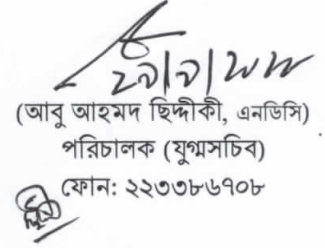 (আবু আহমদ ছিদ্দীকী, এনডিসি)
পরিচালক (যুগ্মসচিব)
ফোন: ২২৩৩৮৬৭০৮